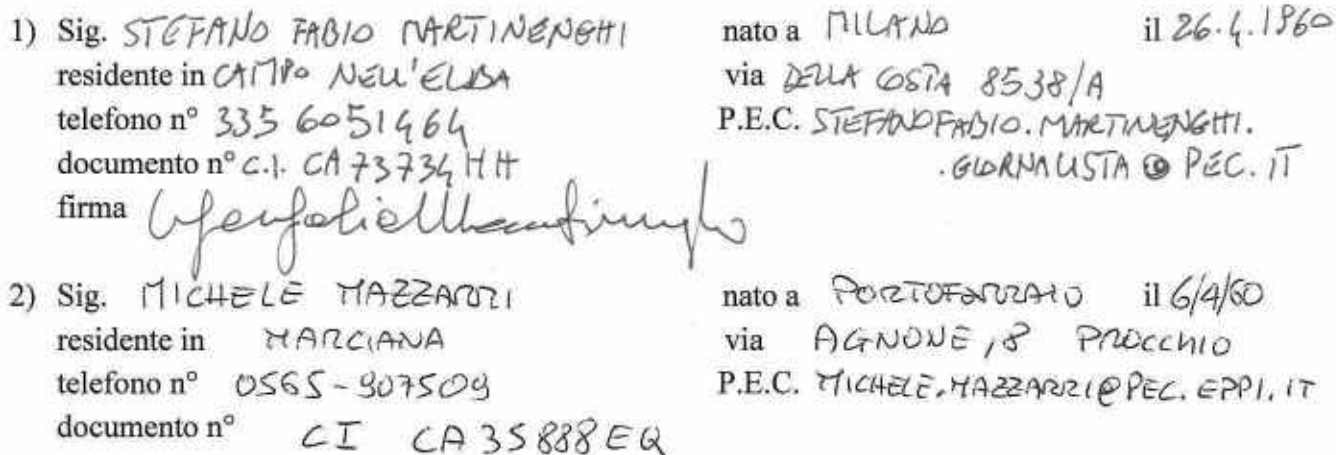 1) Sig. STEFANO FABIO MARTINENGHI nato a MILANO il 26.4.1960
residente in CAMPO NELL'ELBA via DELLA COSTA 8538/A
telefono n° 335 6051464 P.E.C. STEFANOFABIO.MARTINENGHI.
documento n° C.I. CA73734HH .GIORNALISTA@PEC.IT
firma
2) Sig. MICHELE MAZZARRI nato a PORTOFERRAIO il 6/4/60
residente in MARCIANA via AGNONE, 8 PROCCHIO
telefono n° 0565-907509 P.E.C. MICHELE.MAZZARRI@PEC.EPPI.IT
documento n° CI CA35888EQ